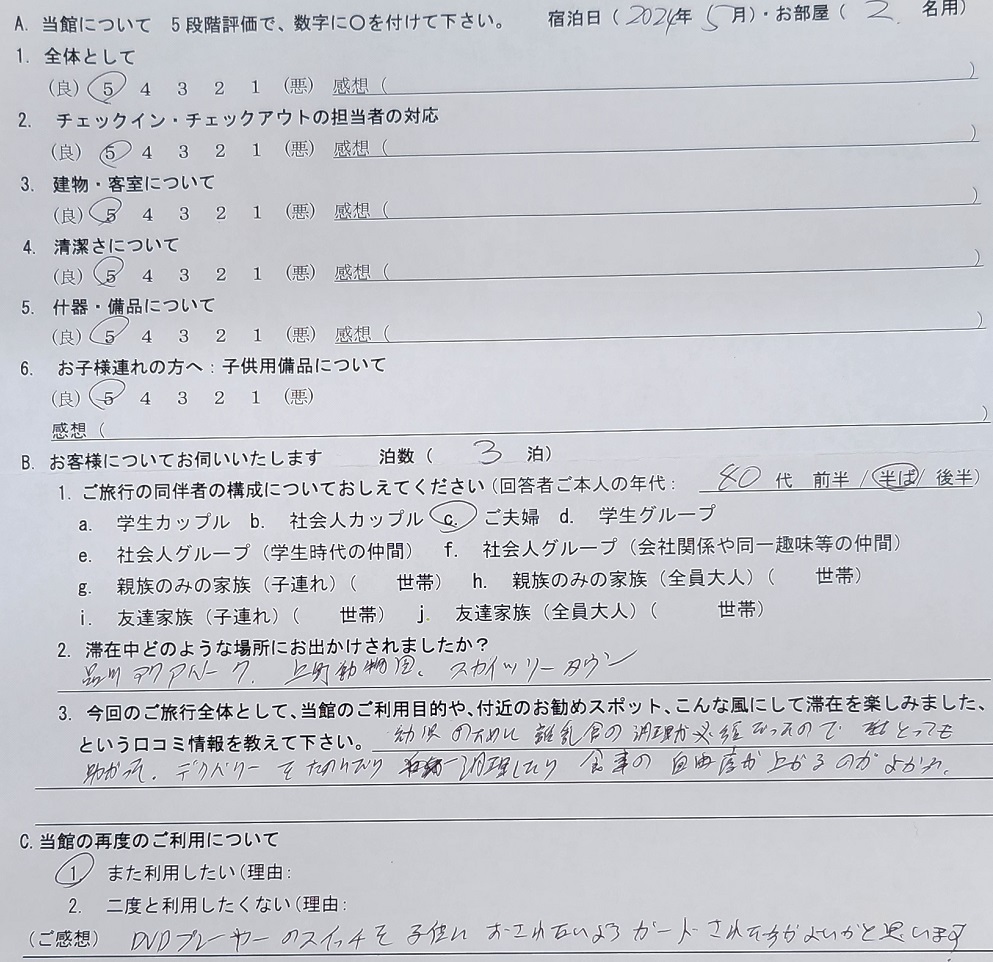 A. 当館について　5段階評価で、数字に○を付けて下さい。　宿泊日（2024年 5月）・お部屋（2 名用）
1. 全体として
(良) 5 4 3 2 1 (悪) 感想（　）
2. チェックイン・チェックアウトの担当者の対応
(良) 5 4 3 2 1 (悪) 感想（　）
3. 建物・客室について
(良) 5 4 3 2 1 (悪) 感想（　）
4. 清潔さについて
(良) 5 4 3 2 1 (悪) 感想（　）
5. 什器・備品について
(良) 5 4 3 2 1 (悪) 感想（　）
6. お子様連れの方へ：子供用備品について
(良) 5 4 3 2 1 (悪)
感想（　）
B. お客様についてお伺いいたします　泊数（ 3 泊）
1. ご旅行の同伴者の構成についておしえてください(回答者ご本人の年代： 代 前半 / 半ば/ 後半)
a. 学生カップル b. 社会人カップル c. ご夫婦 d. 学生グループ
e. 社会人グループ（学生時代の仲間） f. 社会人グループ（会社関係や同一趣味等の仲間）
g. 親族のみの家族（子連れ）（　世帯） h. 親族のみの家族（全員大人）（　世帯）
i. 友達家族（子連れ）（　世帯） j. 友達家族（全員大人）（　世帯）
2. 滞在中どのような場所にお出かけされましたか？
品川アクアパーク、上野動物園、スカイツリータウン
3. 今回のご旅行全体として、当館のご利用目的や、付近のお勧めスポット、こんな風にして滞在を楽しみました、
という口コミ情報を教えて下さい。 幼児のために離乳食の調理が必須だったので とっても
助かった。デリバリーをたのんだり 調理したり 食事の自由度が上がるのがよかった。
C. 当館の再度のご利用について
1. また利用したい(理由：
2. 二度と利用したくない(理由：
(ご感想) DVDプレーヤーのスイッチを子供におされないようガードされた方がよいかと思います